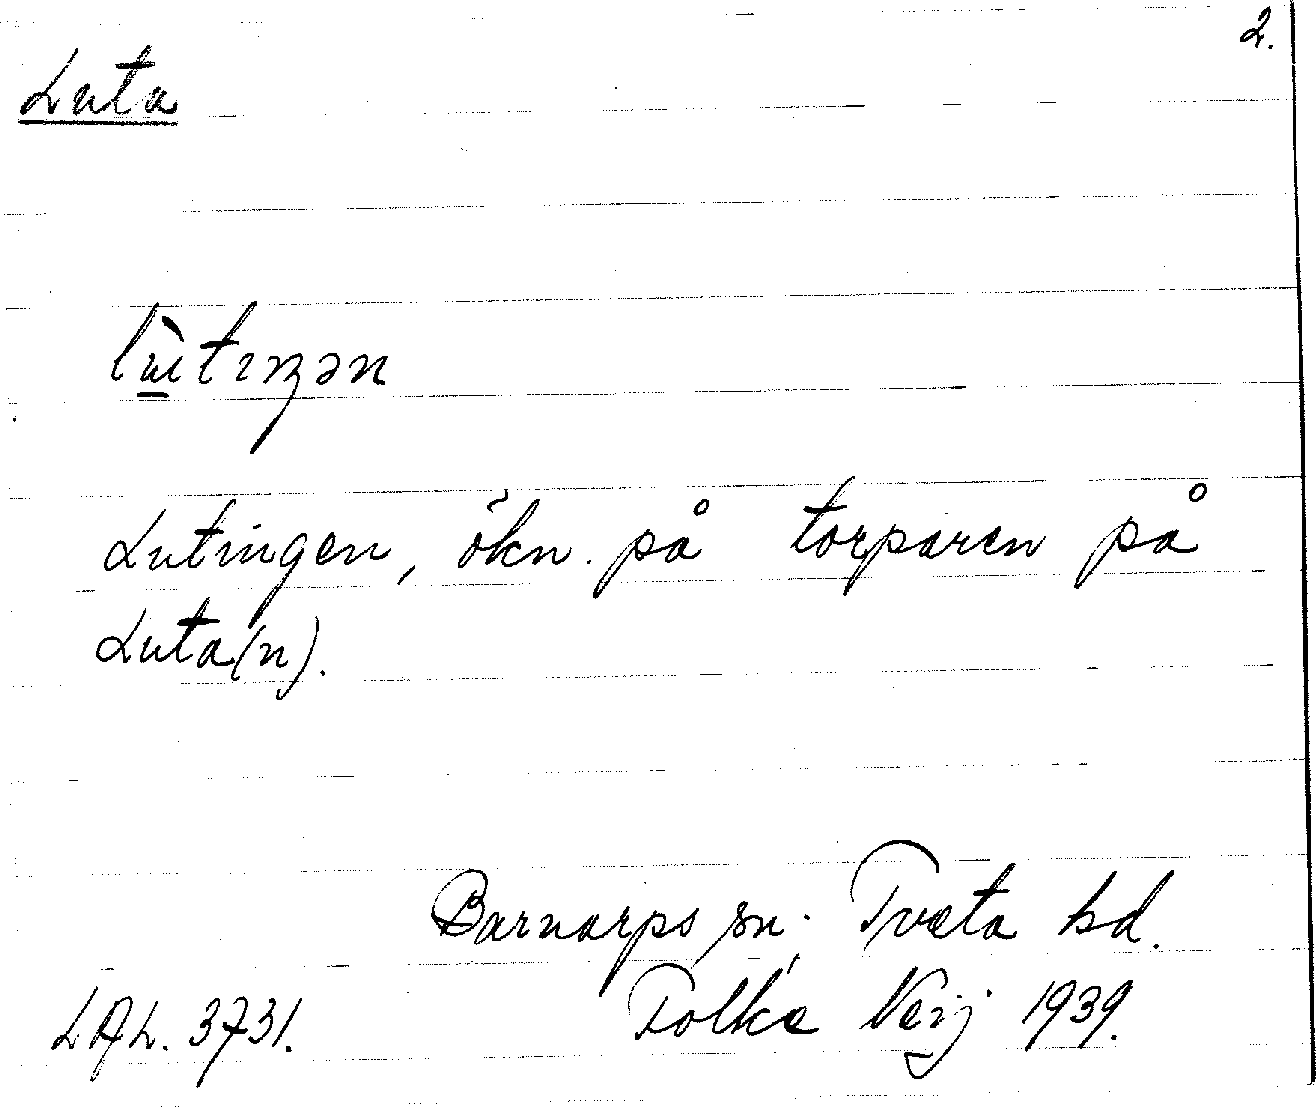 2.
Luta
lùtıŋən
Lutingen, ökn. på torparen på
Luta(n).
Barnarps sn. Tveta hd.
LAL. 3731. Folke Neij 1939.